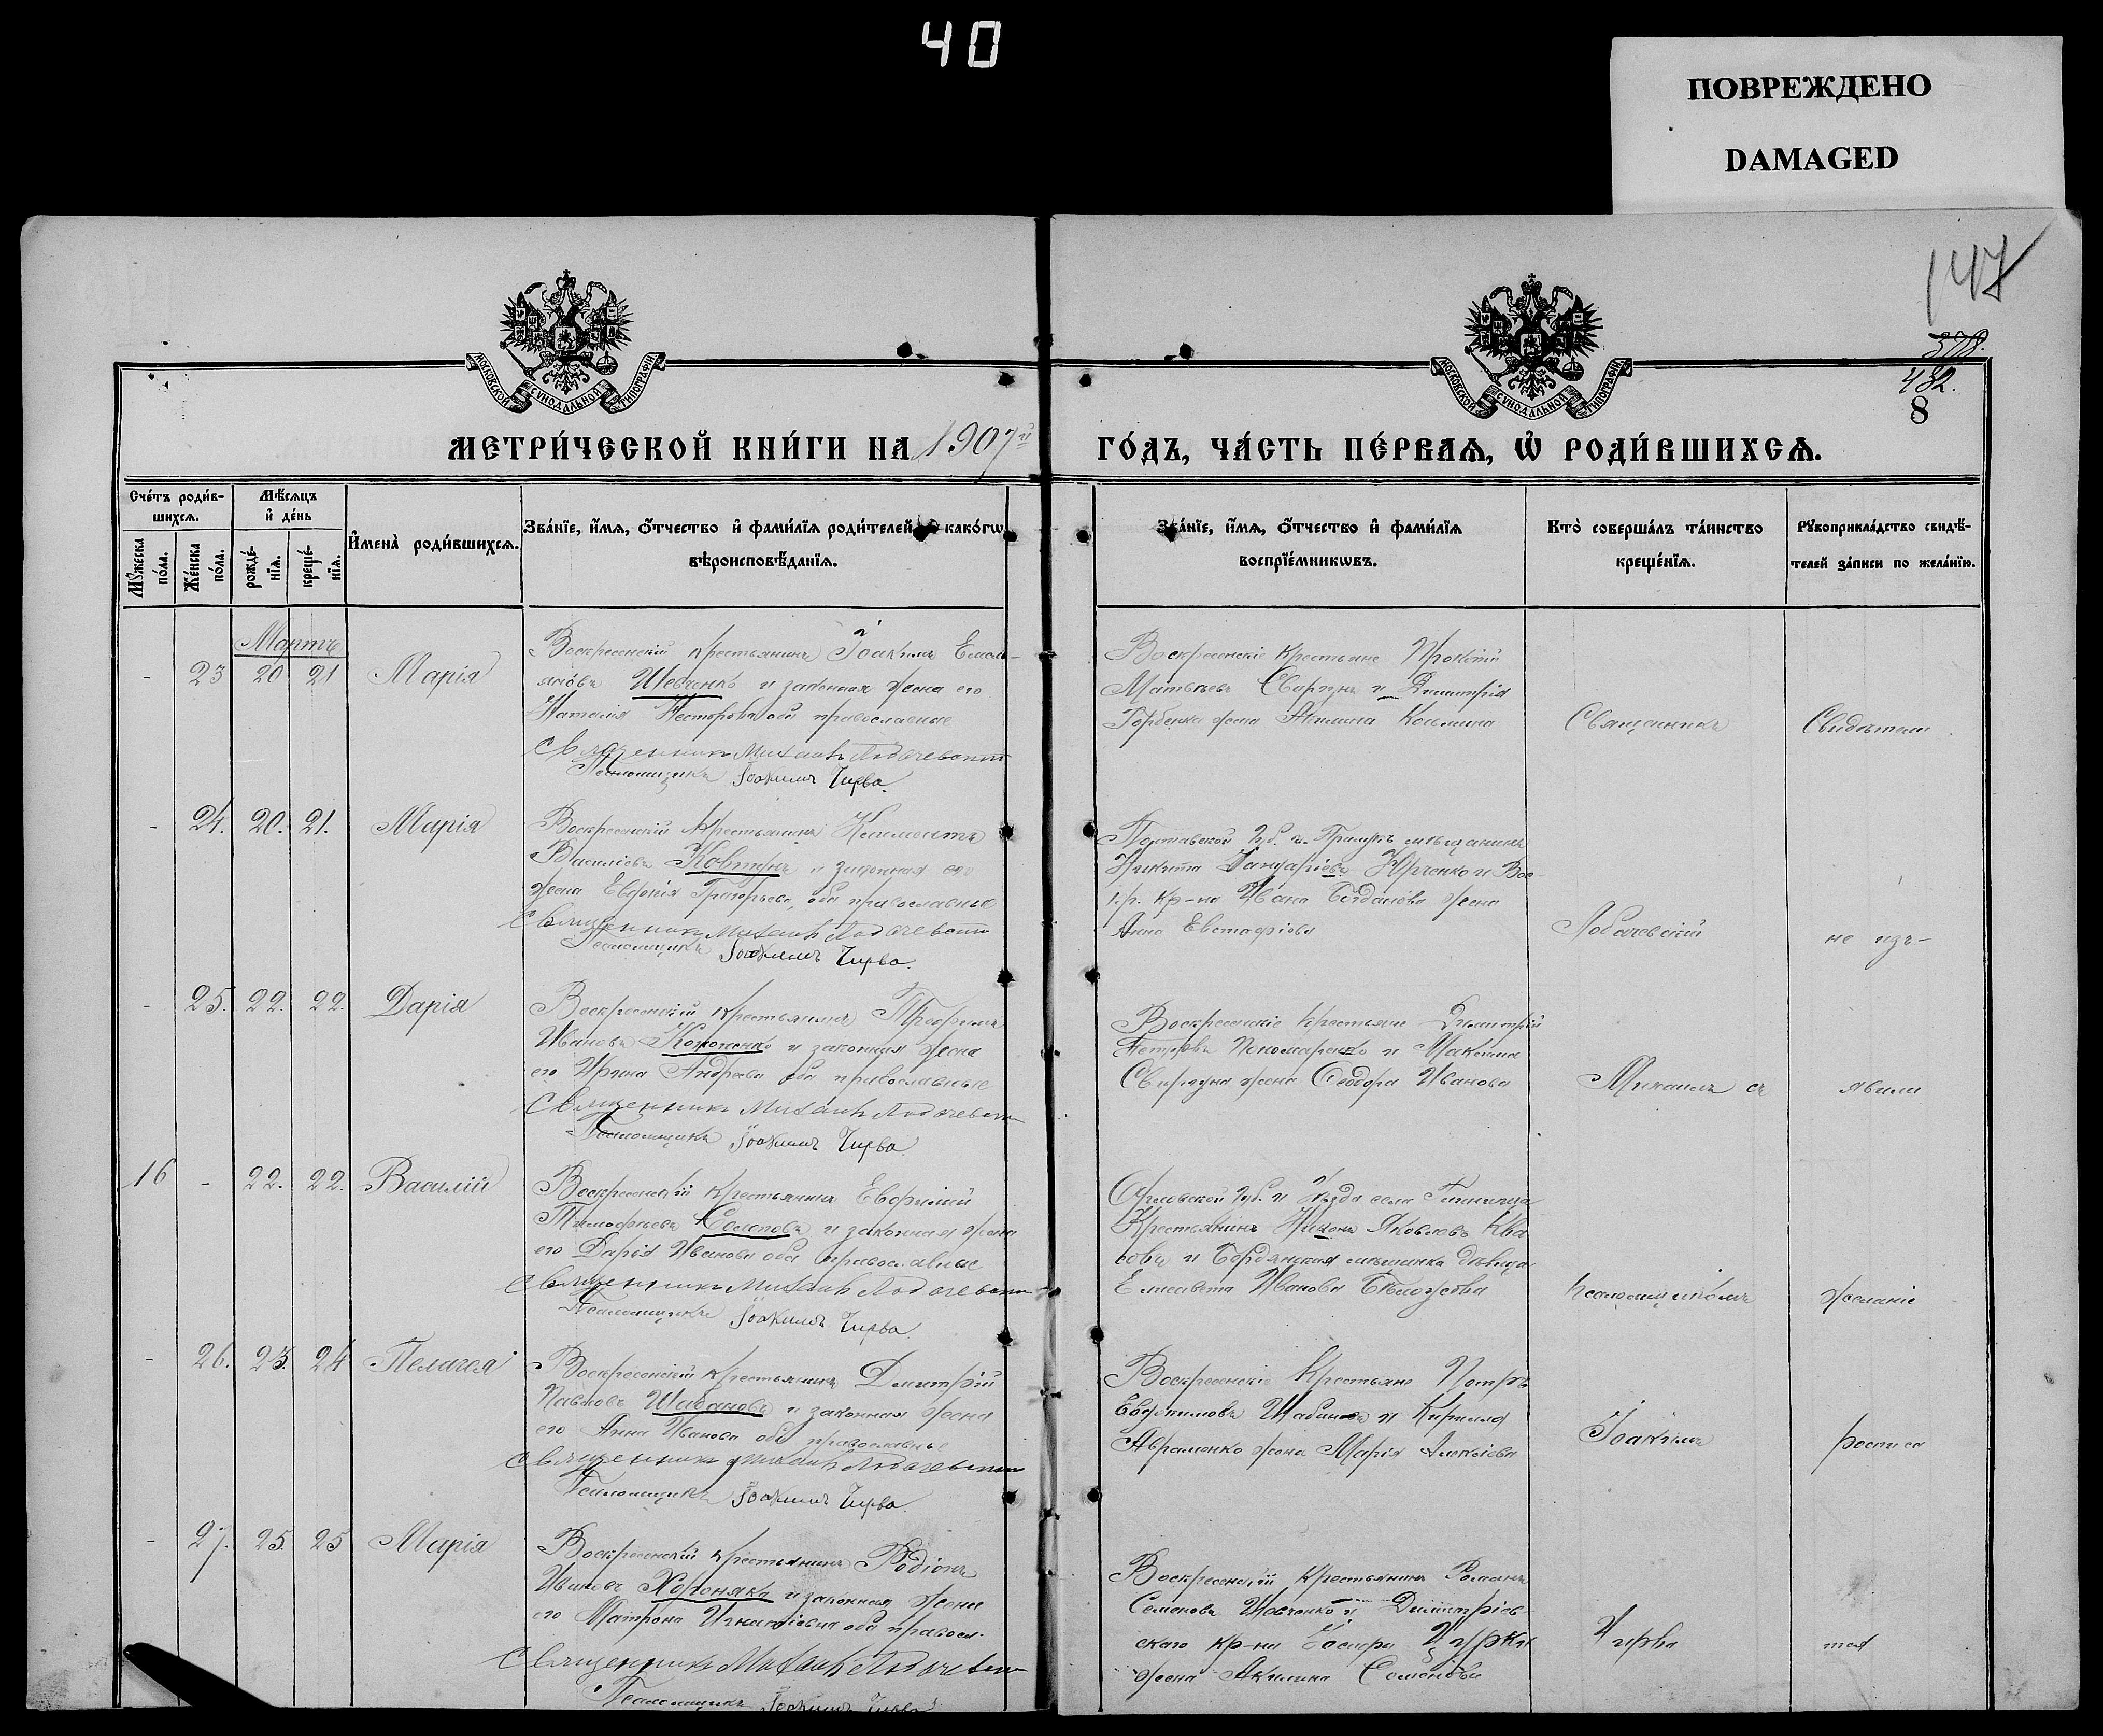 40
ПОВРЕЖДЕНО
DAMAGED
147
378.
432.
8
МОСКОВСКОЙ СѴНОДАЛЬНОЙ ТИПОГРАФІИ
МОСКОВСКОЙ СѴНОДАЛЬНОЙ ТИПОГРАФІИ
МЕТРИ́ЧЕСКОЙ КНИ́ГИ НА 1907й ГО́ДЪ, ЧА́СТЬ ПЕ́РВАѦ, Ѡ҆ РОДИ́ВШИХСѦ.
Сче́тъ роди́в-
шихсѧ.
Мꙋ́жеска по́ла.
Же́нска по́ла.
Мѣ́сѧцъ и҆ де́нь
рожде́-
нїѧ.
креще́-
нїѧ.
И҆мена̀ роди́вшихсѧ.
Зва́нїе, и҆́мѧ, ѻ҆́тчество и҆ фами́лїѧ роди́телей, и҆ како́гѡ
вѣроисповѣ́данїѧ.
Зва́нїе, и҆́мѧ, ѻ҆́тчество и҆ фами́лїѧ
воспрїе́мникѡвъ.
Кто̀ соверша́лъ та́инство
креще́нїѧ.
Рꙋкоприкла́дство свидѣ́-
телей за́писи по жела́нїю.
Мартъ
- 23 20 21 Марія
Воскресенскій крестьянинъ Іоакимъ Емель-
яновъ Шевченко и законная жена его
Наталія Несторова оба православные
Священникъ Михаилъ Лобачевскій
Псаломщикъ Іоакимъ Чирва.
Воскресенскіе крестьяне Прокопій
Матвѣевъ Свиргунъ и Димитрія
Горбенка жена Акилина Козьмина
Священникъ
Свидѣтели
- 24. 20. 21. Марія
Воскресенскій крестьянинъ Климентъ
Василіевъ Ковтунъ и законная его
жена Евфимія Григорьева, оба православные
Священникъ Михаилъ Лобачевскій
Псаломщикъ Іоакимъ Чирва.
Полтавской губ. мѣщанинъ
Никита Юрченко и Вос-
кр. кр-на Ивана Богданова жена
Анна Евстафіева
Лобачевскій
не изъ-
- 25. 22. 22. Дарія
Воскресенскій крестьянинъ Трофимъ
Ивановъ Кононенко и законная жена
его Ирина Андреева оба православные
Священникъ Михаилъ Лобачевскій
Псаломщикъ Іоакимъ Чирва.
Воскресенскіе крестьяне Димитрій
Петровъ Пономаренко и Максима
Свиргуна жена Ѳеодора Иванова
Михаилъ съ
явили
16 - 22. 22. Василій
Воскресенскій крестьянинъ Евфимій
Тимофеевъ и законная жена
его Дарія Иванова оба православные
Священникъ Михаилъ Лобачевскій
Псаломщикъ Іоакимъ Чирва.
Орловской губ. и уѣзда села
Крестьянинъ Никонъ Яковлевъ Ква
совъ и Бердянская мѣщанка дѣвица
Елисавета Иванова
псаломщикомъ
желаніе
- 26. 23. 24 Пелагея
Воскресенскій крестьянинъ Димитрій
Павловъ Шабановъ и законная жена
его Анна Иванова оба православные
Священникъ Михаилъ Лобачевскій
Псаломщикъ Іоакимъ Чирва.
Воскресенскіе крестьяне Петръ
Евфимовъ Шабановъ и Кирилла
Авраменко жена Марія Алексіева
Іоакимъ
росписа
- 27. 25. 25 Марія
Воскресенскій крестьянинъ Родіонъ
Ивановъ Хороняко и законная жена
его Матрона Игнатіевна оба правосл.
Священникъ Михаилъ Лобачевскій
Псаломщикъ Іоакимъ Чирва
Воскресенскій крестьянинъ Романъ
Семеновъ Шевченко и Димитріев-
скаго кр-на жена Акилина Семенова
Чирва
тся